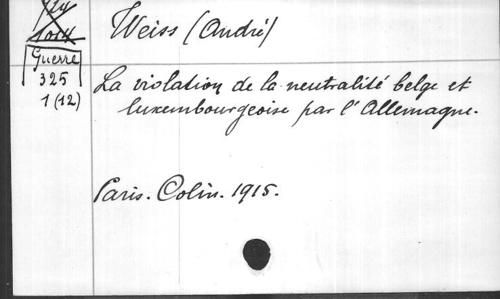 Weiss (André)
Guerre
325
1 (12)
La violation de la neutralité belge et
luxembourgeoise par l'Allemagne.
Paris. Colin. 1915.